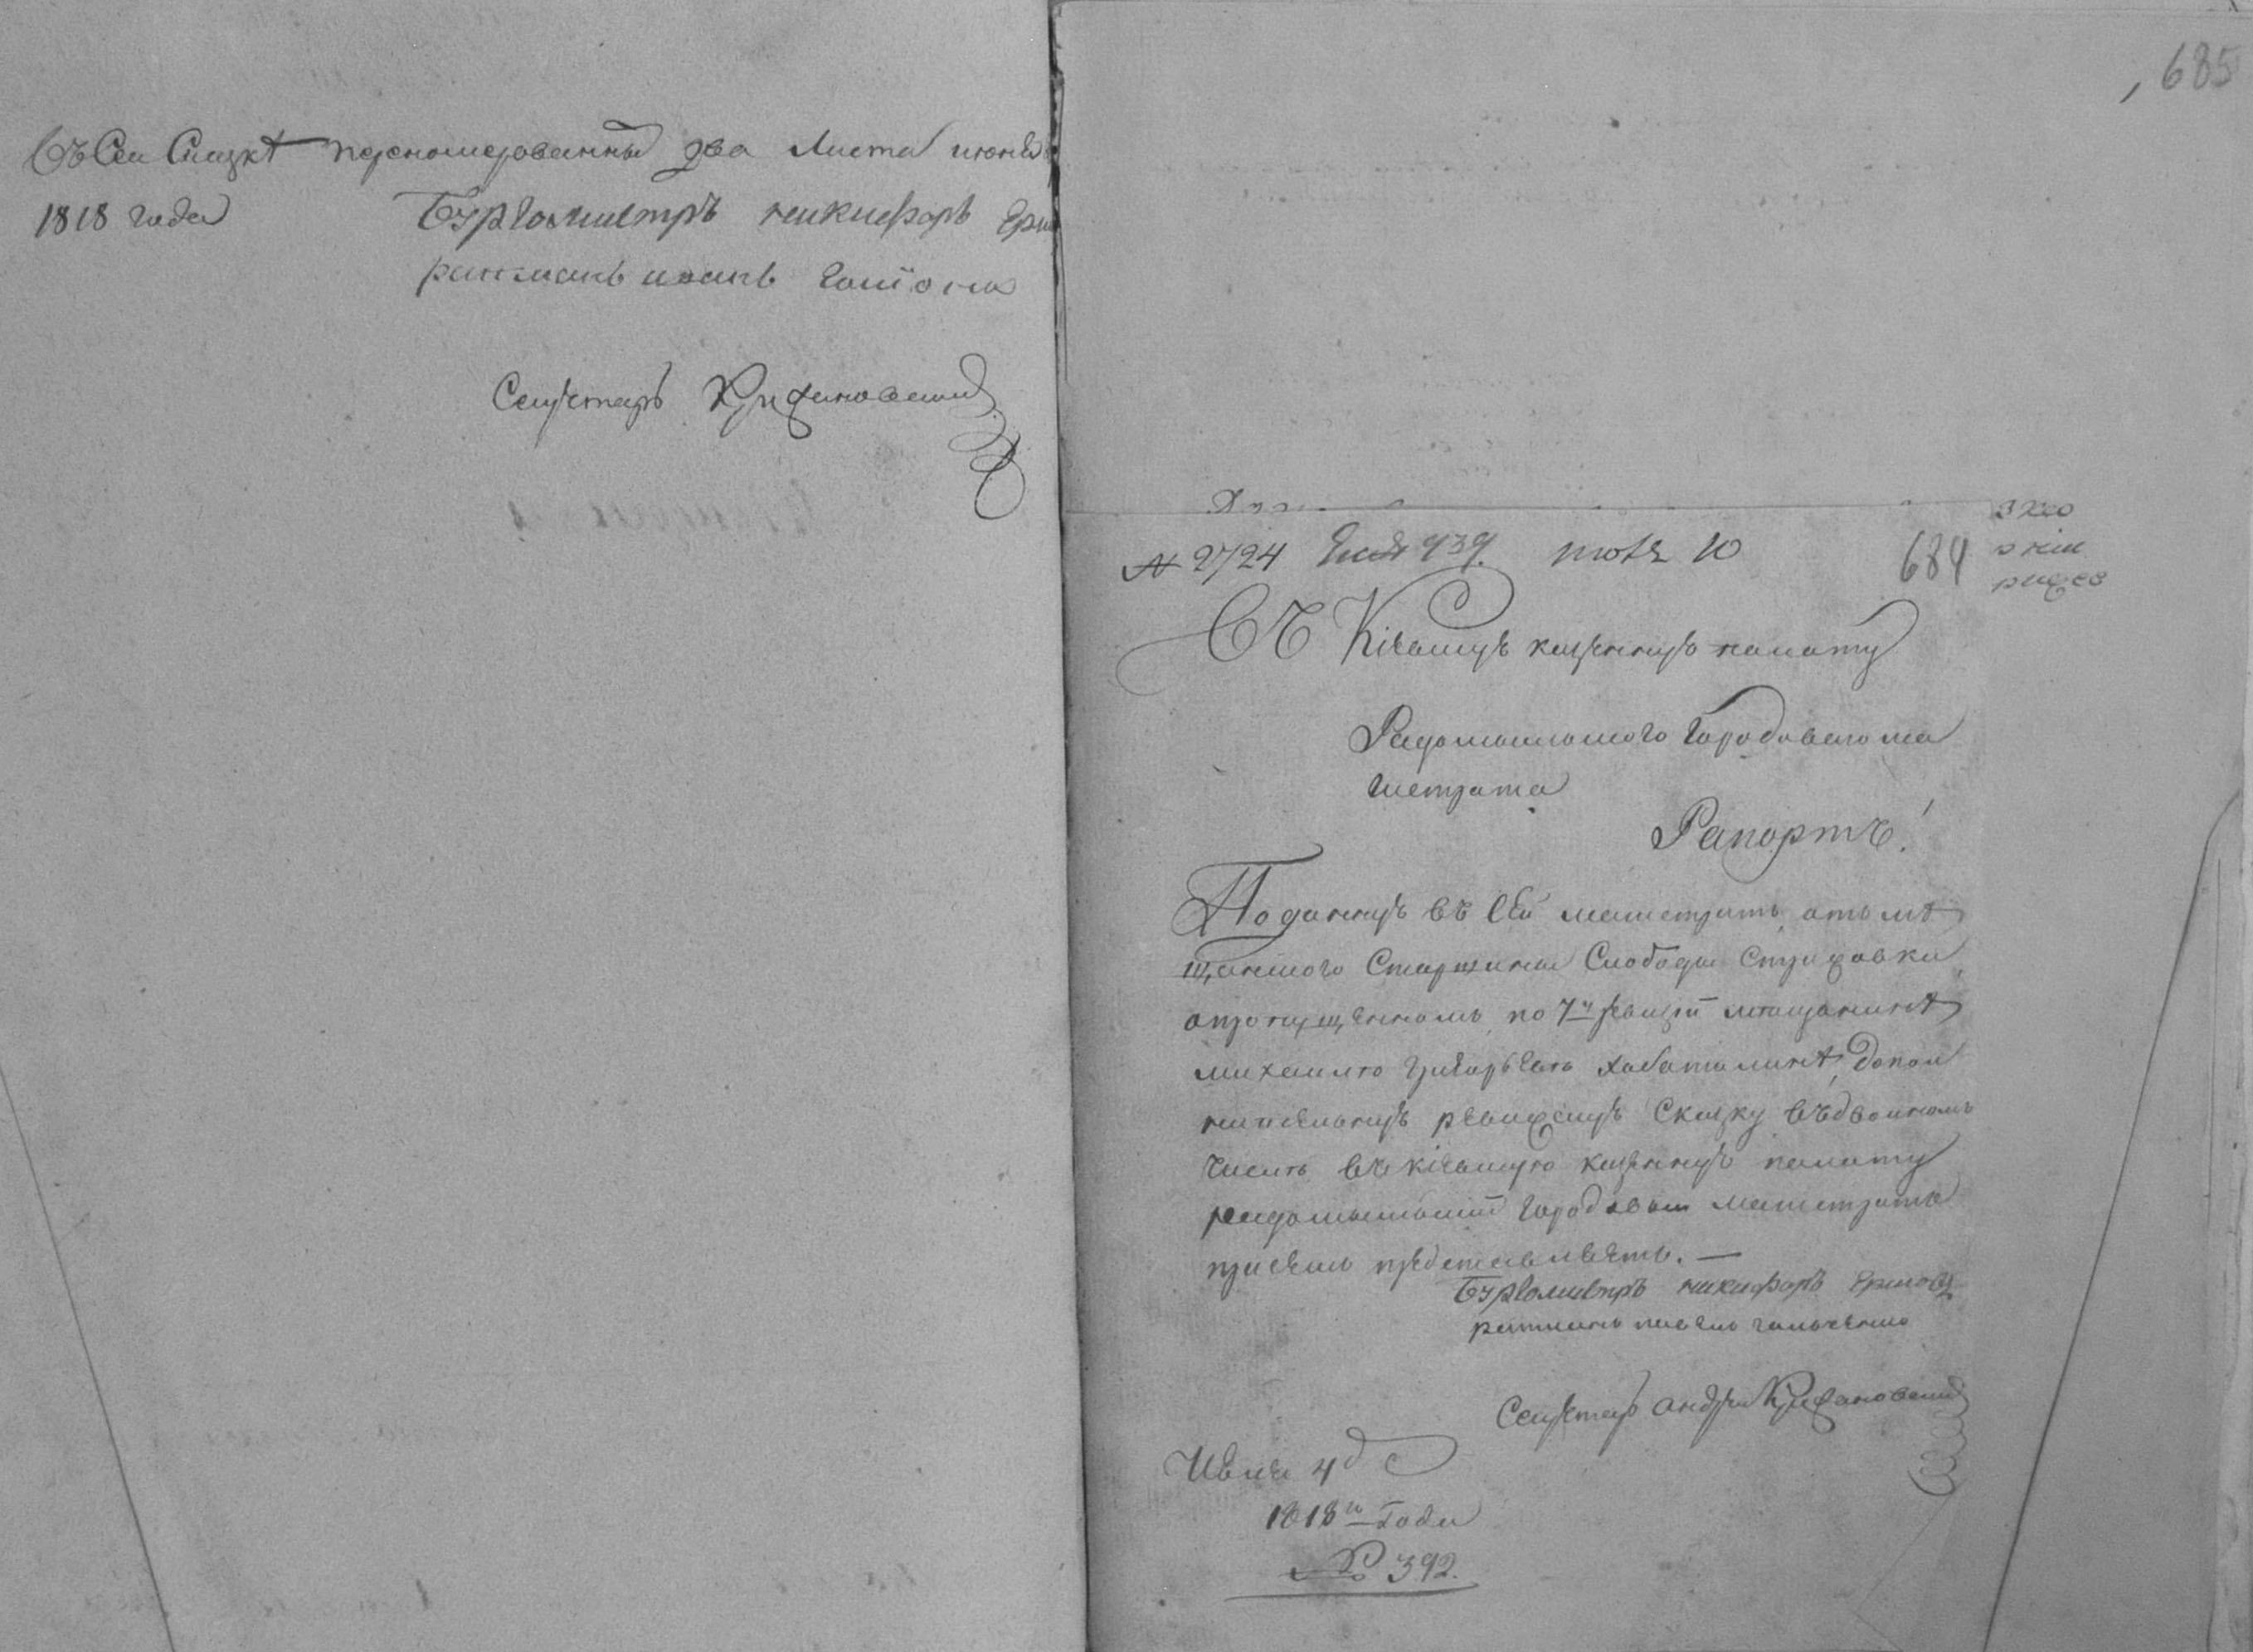 Въ Сей Сказкѣ перенумерованныхъ два листа июня
1818 года
Бургомистръ никифоръ
ратманъ иванъ
Секретарь Крижановский
685
№ 2724 июля 10
684
Въ Кіевскую казенную палату
Радомысльского Городоваго ма
гистрата
Рапортъ!
Поданную въ сей магистратъ отъ мѣ
щанского Старшины Слободы Струцовки
о пропущенномъ по 7й ревизіи мѣщанинѣ
михаилѣ григорьевѣ хабаталинѣ, допол
нительную ревизскую Сказку въ двойномъ
числѣ въ кіевскую казенную палату
радомысльский городовый магистратъ
при семъ представляетъ. —
Бургомистръ никифоръ
ратманъ павелъ
Секретарь андрей Крижановский
Июля 4 д
1818го Года
№ 392.